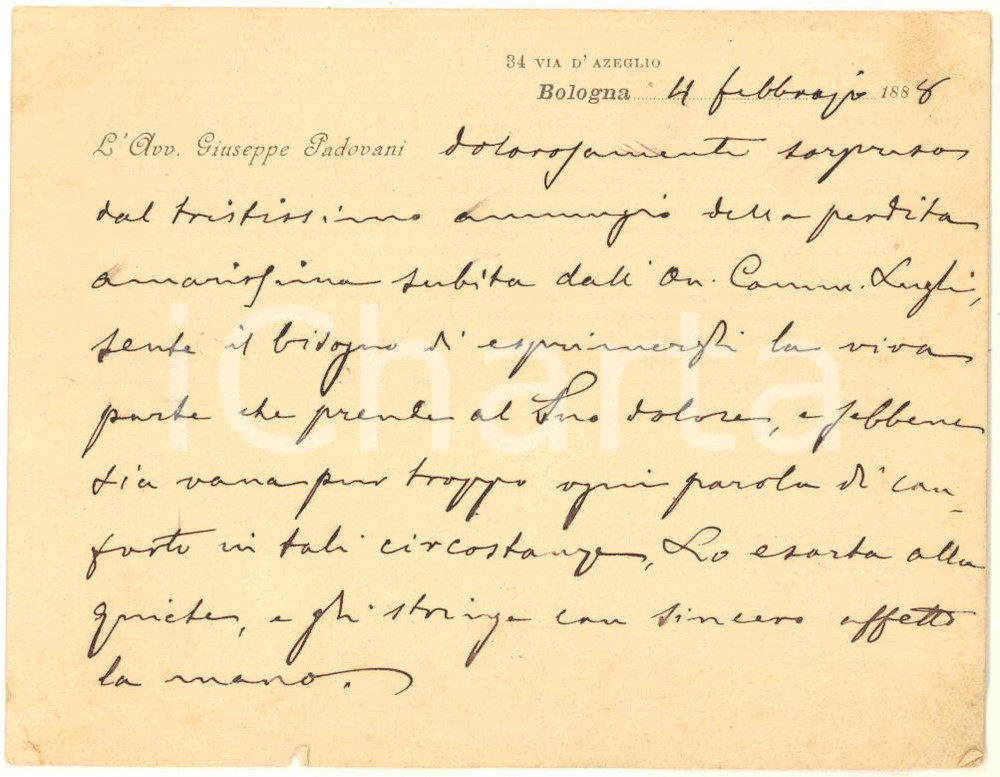 34 VIA D'AZEGLIO
Bologna 4 febbrajo 1888
L'Avv. Giuseppe Padovani dolorosamente sorpreso
dal tristissimo annunzio della perdita
amarissima subita dall'On. Comm. Lugli,
sente il bisogno di esprimergli la viva
parte che prende al Suo dolore, e sebbene
sia vana pur troppo ogni parola di con-
forto in tali circostanze, Lo esorta alla
quiete, e gli stringe con sincero affetto
la mano.
iCharta